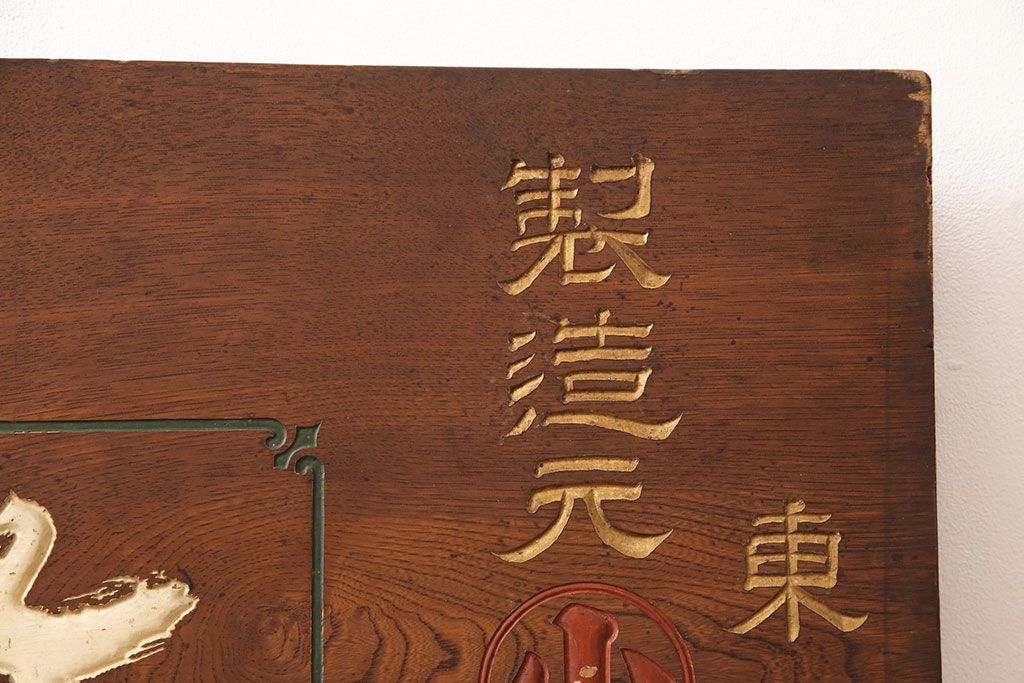 東
製造元